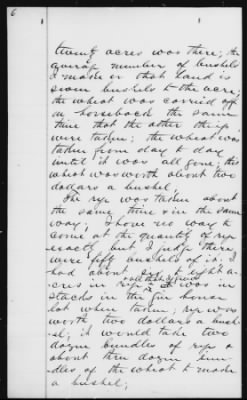 6
twenty acres was there; the
average number of bushels
I made on that land is
seven bushels to the acre;
the wheat was carried off
on horseback the same
time that the other things
were taken; the wheat was
taken from day to day
until it was all gone; the
wheat was worth about two
dollars a bushel.
The rye was taken about
the same time & in the same
way; I have no way to
come at the quantity of rye
exactly but I judge there
were fifty bushels of it. I
had about to eight a-
cres in rye; it was in
stacks in the gin house
lot when taken; rye was
worth two dollars a bush-
el; it would take two
dozen bundles of rye &
about three dozen bun-
dles of the wheat to make
a bushel;